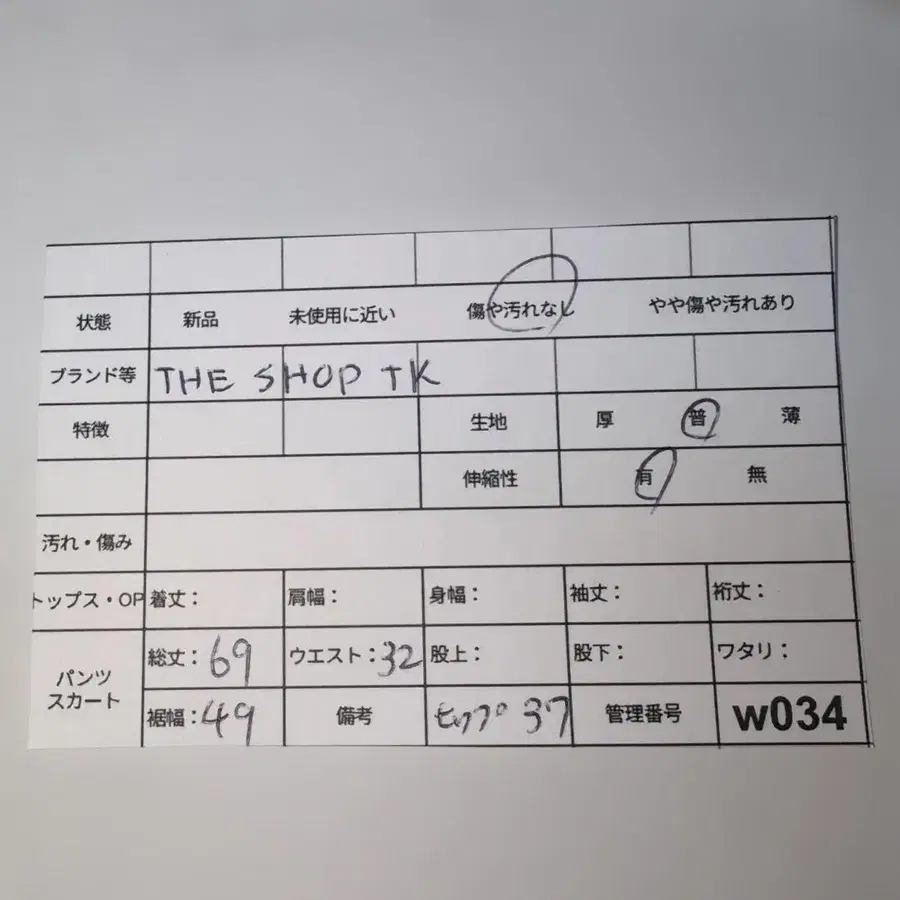 状態 新品 未使用に近い 傷や汚れなし やや傷や汚れあり
ブランド等 THE SHOP TK
特徴 生地 厚 普 薄
伸縮性 有 無
汚れ・傷み
トップス・OP 着丈： 肩幅： 身幅： 袖丈： 裄丈：
パンツ スカート 総丈：69 ウエスト：32 股上： 股下： ワタリ：
裾幅：49 備考 ヒップ 37 管理番号 w034